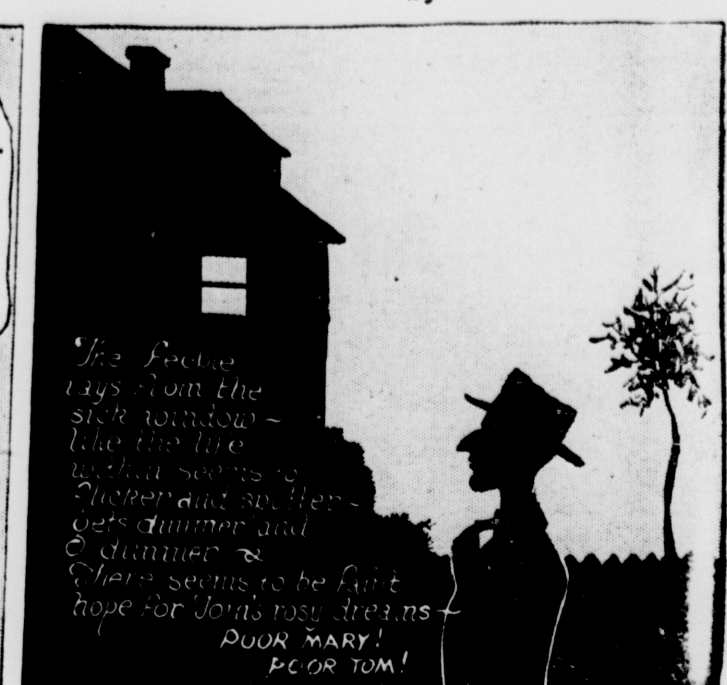 The feeble
rays from the
sick window –
like the life
within seems to
flicker and sputter –
gets dimmer and
dimmer
There seems to be faint
hope for Tom's rosy dreams –
POOR MARY!
POOR TOM!